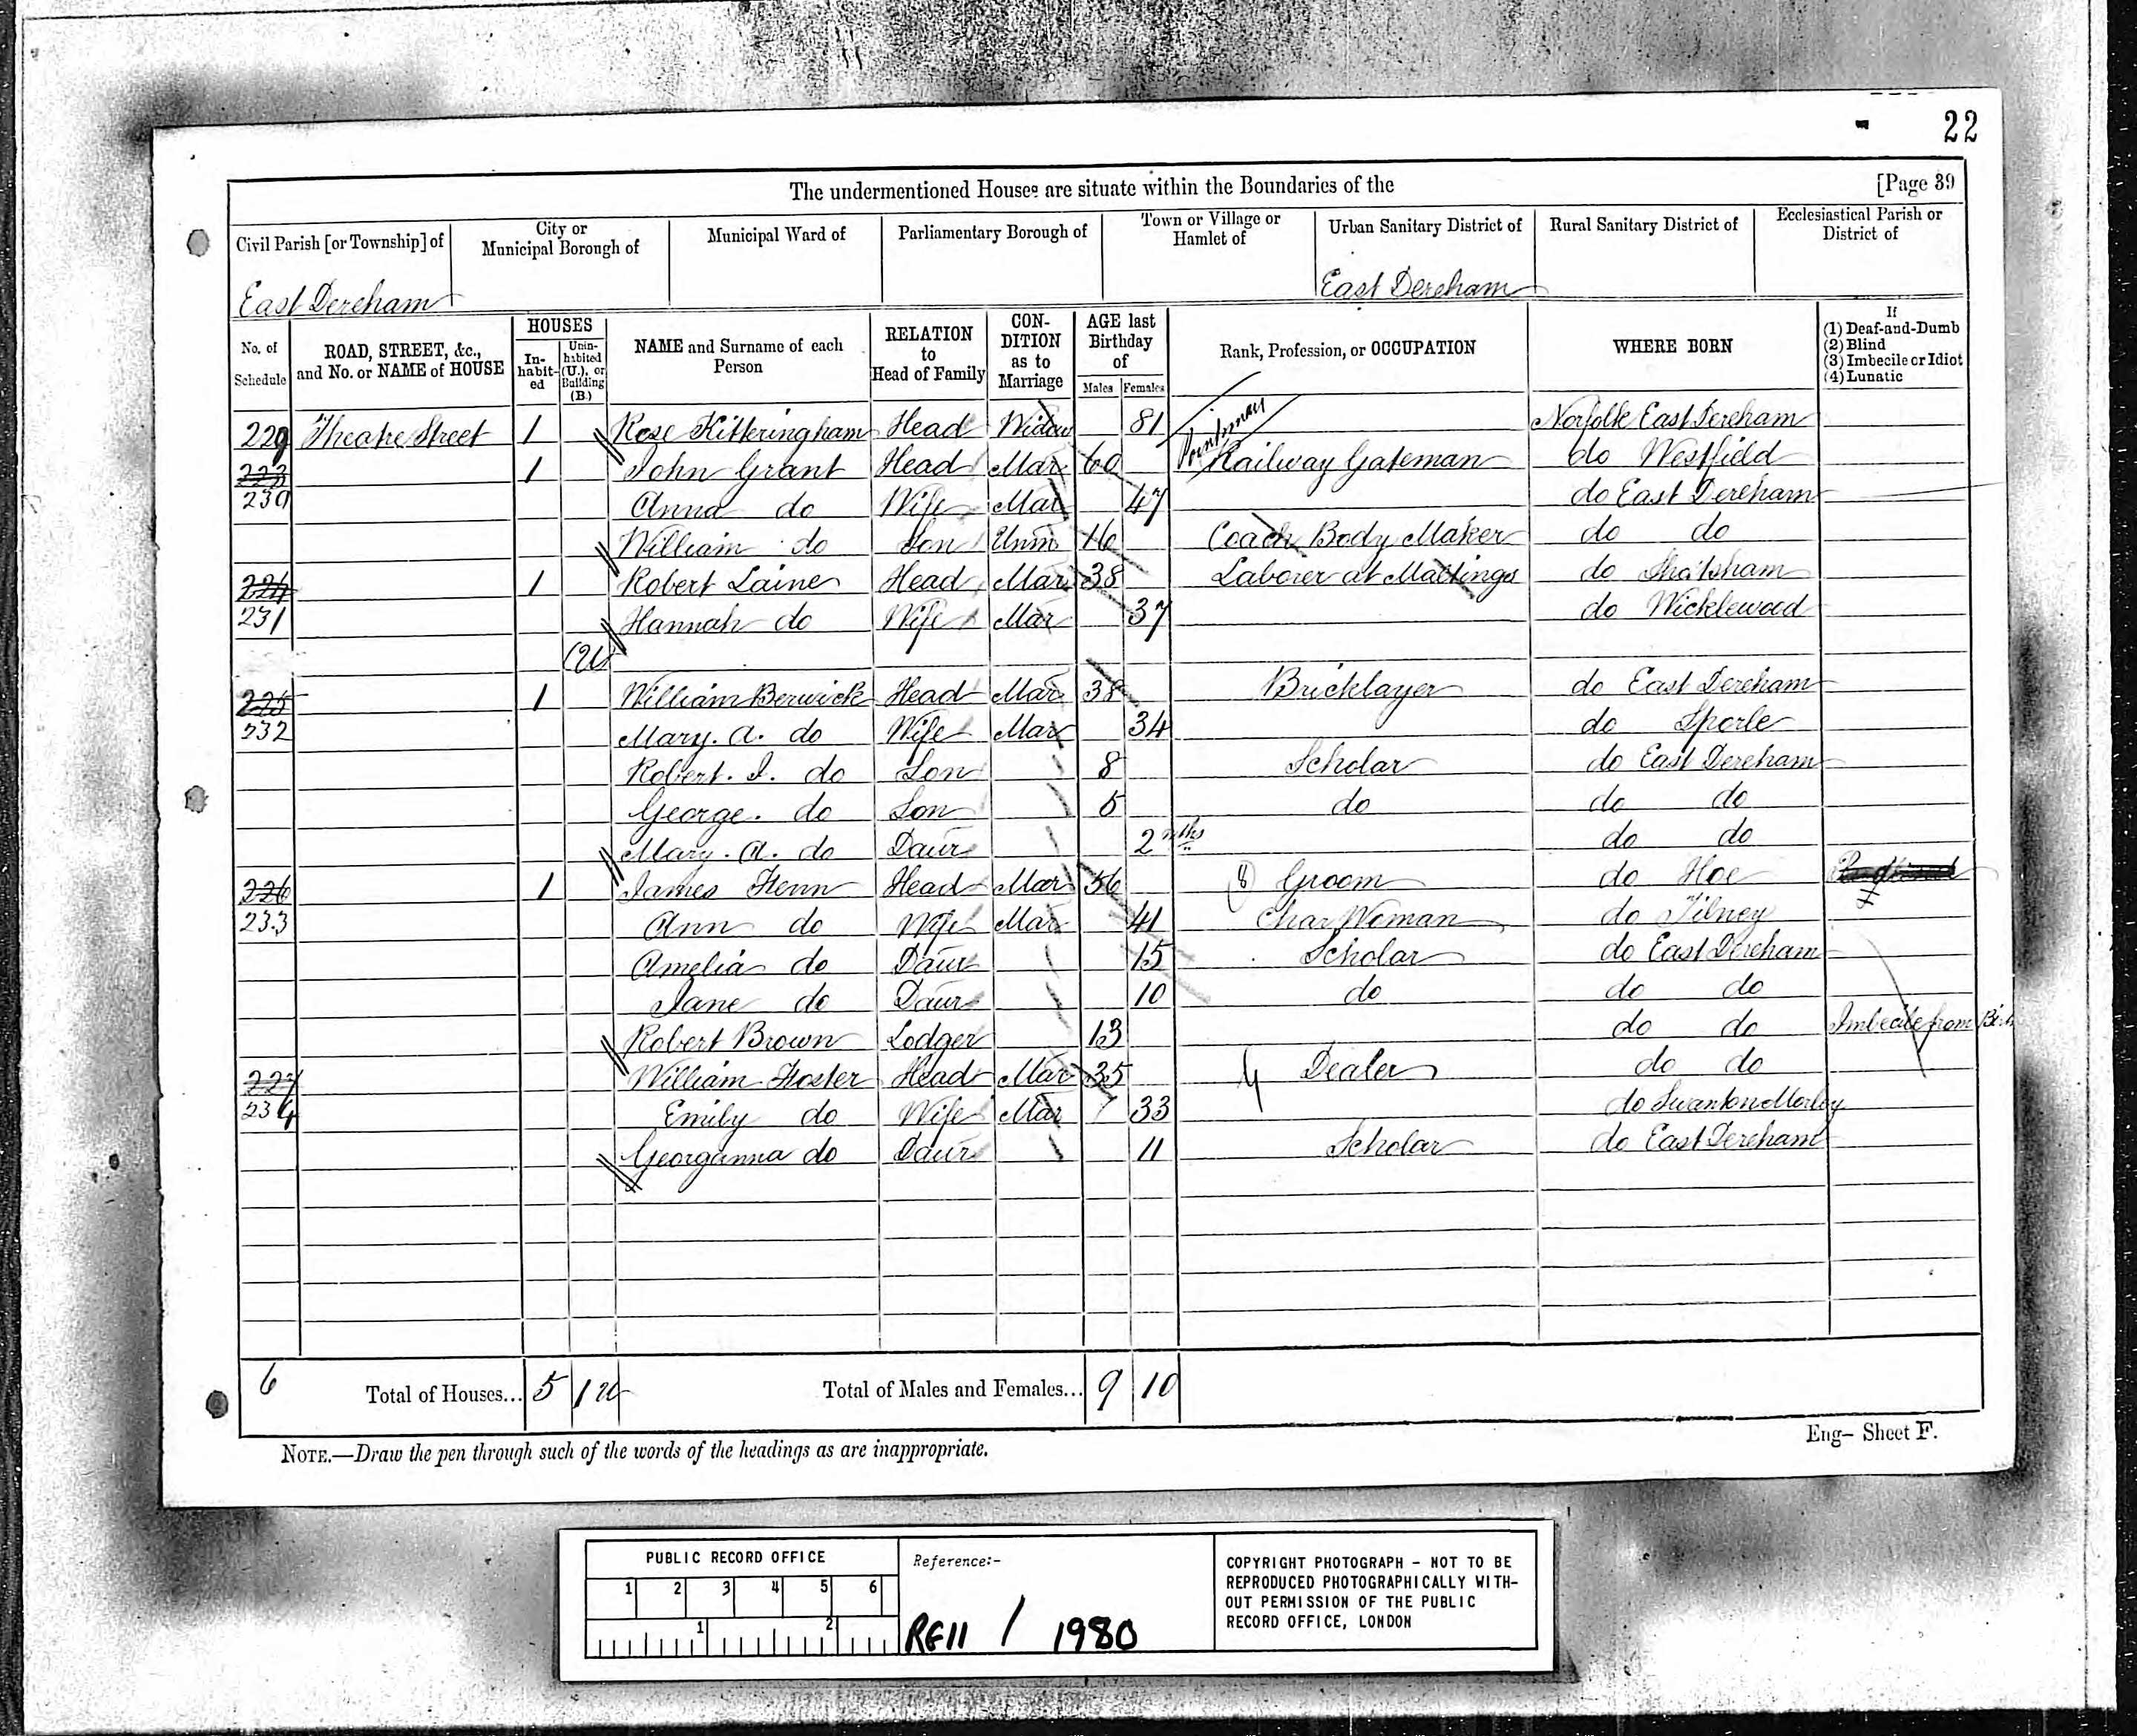 22
The undermentioned Houses are situate within the Boundaries of the [Page 39
Civil Parish [or Township] of City or Municipal Borough of Municipal Ward of Parliamentary Borough of Town or Village or Hamlet of Urban Sanitary District of Rural Sanitary District of Ecclesiastical Parish or District of
East Dereham East Dereham
No. of Schedule ROAD, STREET, &c., and No. or NAME of HOUSE HOUSES Inhabited Uninhabited (U.), or Building (B.) NAME and Surname of each Person RELATION to Head of Family CONDITION as to Marriage AGE last Birthday of Males Females Rank, Profession, or OCCUPATION WHERE BORN If (1) Deaf-and-Dumb (2) Blind (3) Imbecile or Idiot (4) Lunatic
229 Theatre Street 1 Rose Kitteringham Head Widow 81 Norfolk East Dereham
Pointsman
223 1 John Grant Head Mar 60 Railway Gateman do Westfield
230 Anna do Wife Mar 47 do East Dereham
William do Son Unm 16 Coach Body Maker do do
224 1 Robert Laine Head Mar 38 Laborer at Maltings do
231 Hannah do Wife Mar 37 do Wicklewood
(U
225 1 William Berwick Head Mar 38 Bricklayer do East Dereham
232 Mary. A. do Wife Mar 34 do Sporle
Robert. I. do Son 8 Scholar do East Dereham
George. do Son 5 do do do
Mary. A. do Daur 2 mths do do
226 1 James Fenn Head Mar 56 8 Groom do Hoe
233 Ann do Wife Mar 41 Char Woman do Tilney
Amelia do Daur 15 Scholar do East Dereham
Jane do Daur 10 do do do
Robert Brown Lodger 13 do do Imbecile from Birth
227 William Foster Head Mar 35 Dealer do do
234 Emily do Wife Mar 33 do Swanton Morley
Georganna do Daur 11 Scholar do East Dereham
6 Total of Houses... 5 1 U Total of Males and Females... 9 10
NOTE.—Draw the pen through such of the words of the headings as are inappropriate. Eng- Sheet F.
PUBLIC RECORD OFFICE
1 2 3 4 5 6
1 2
Reference:-
RG11 / 1980
COPYRIGHT PHOTOGRAPH - NOT TO BE
REPRODUCED PHOTOGRAPHICALLY WITH-
OUT PERMISSION OF THE PUBLIC
RECORD OFFICE, LONDON